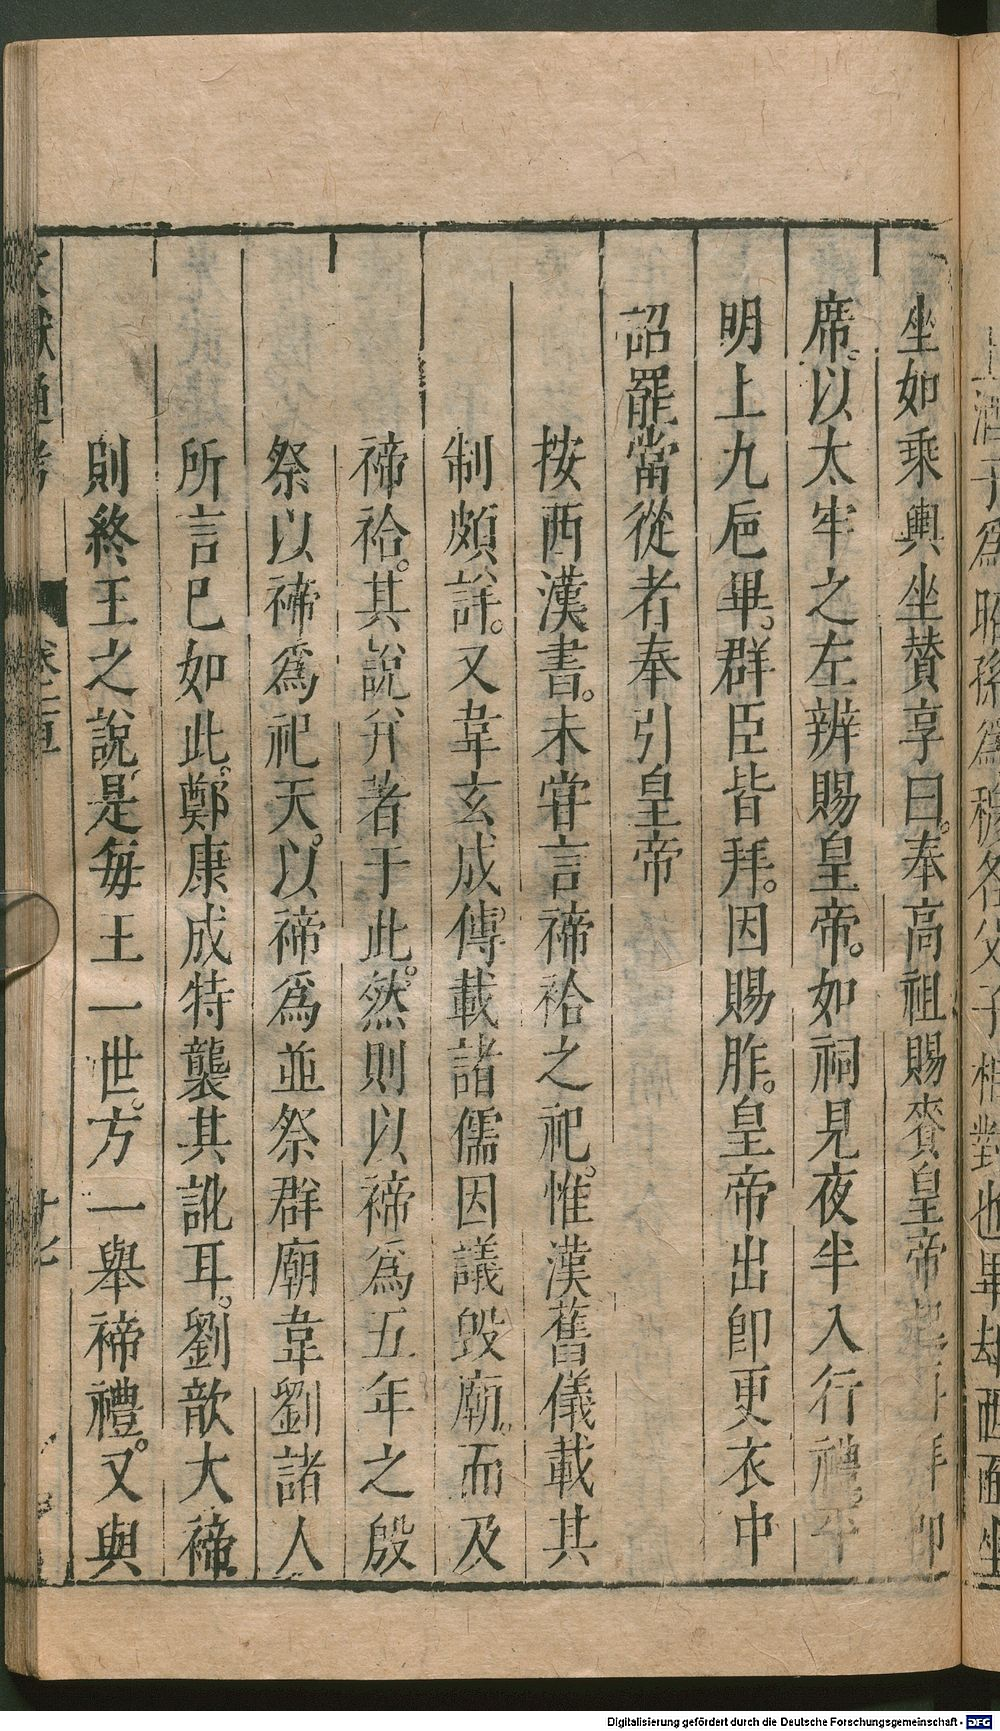 坐如乘輿坐贊享曰奉高祖賜賚皇帝起再拜卽
席以太牢之左辨賜皇帝如祠見夜半入行禮平
明上九巵畢群臣皆拜因賜胙皇帝出卽更衣中
詔罷當從者奉引皇帝
按西漢書未甞言禘祫之祀惟漢舊儀載其
制頗詳又韋玄成傳載諸儒因議毀廟而及
禘祫其說幷著于此然則以禘爲五年之殷
祭以禘爲祀天以禘爲並祭群廟韋劉諸人
所言已如此鄭康成特襲其訛耳劉歆大禘
則終王之說是每王一世方一舉禘禮又與
文獻通考
十七
子爲昭孫爲穆各父子相對也畢却西面坐
Digitalisierung gefördert durch die Deutsche Forschungsgemeinschaft - DFG